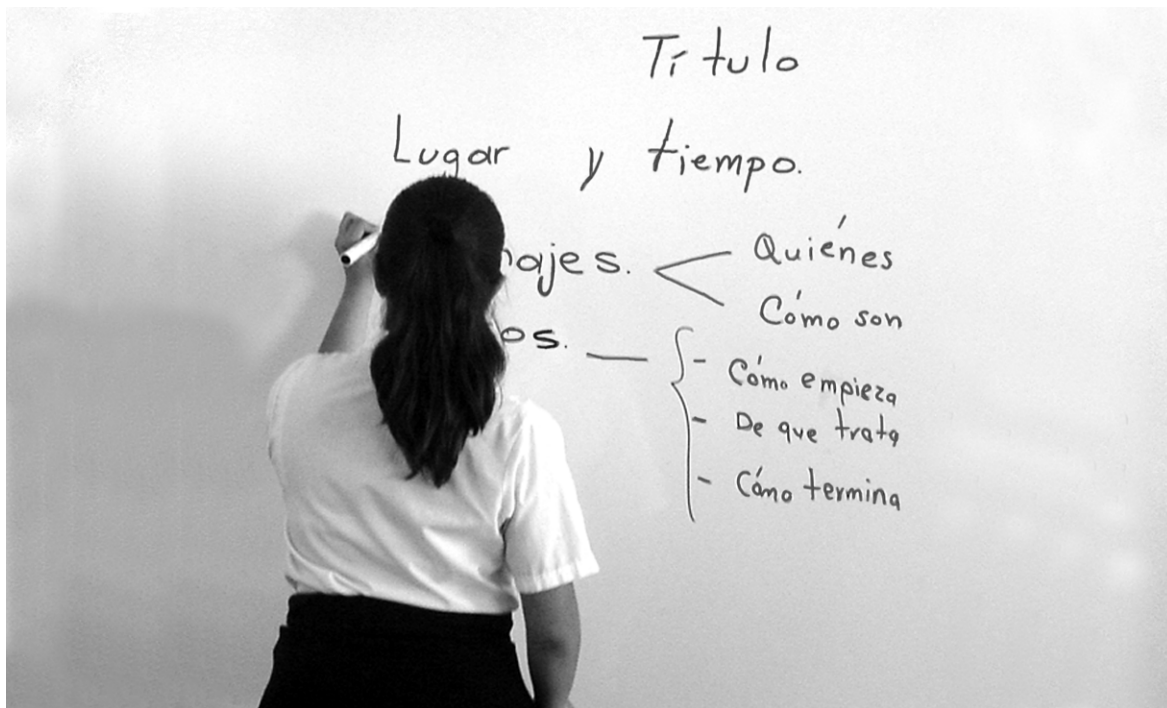 Título
Lugar y tiempo.
ajes. Quiénes
Cómo son
os.
- Cómo empieza
- De que trata
- Cómo termina